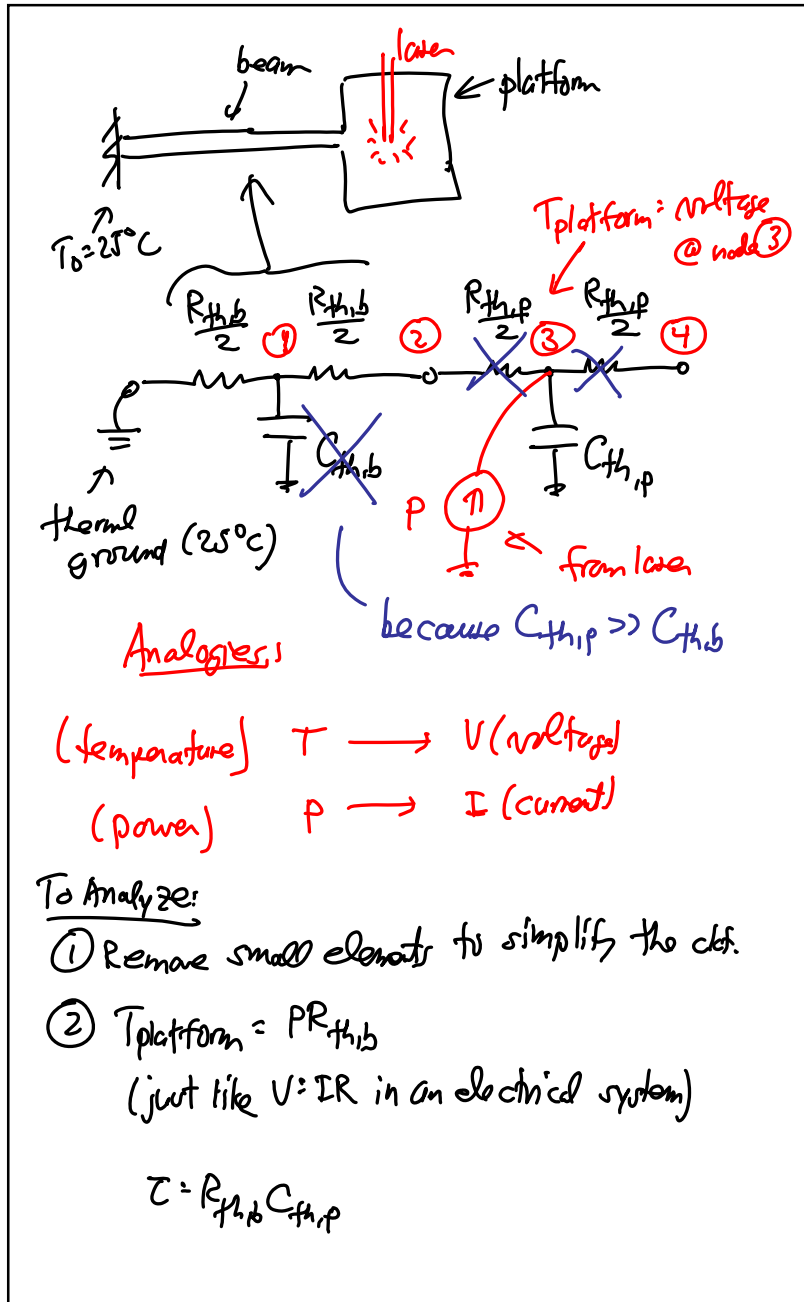 laser
beam
platform
T₀=25°C
Tplatform: voltage
@ node ③
R_th,b/2 R_th,b/2 R_th,p/2 R_th,p/2
① ② ③ ④
C_th,b C_th,p
P
thermal
ground (25°C)
from laser
because C_th,p >> C_th,b
Analogies:
(temperature) T → V (voltage)
(power) P → I (current)
To Analyze:
① Remove small elements to simplify the ckt.
② Tplatform = PR_th,b
(just like V=IR in an electrical system)
τ = R_th,b C_th,p